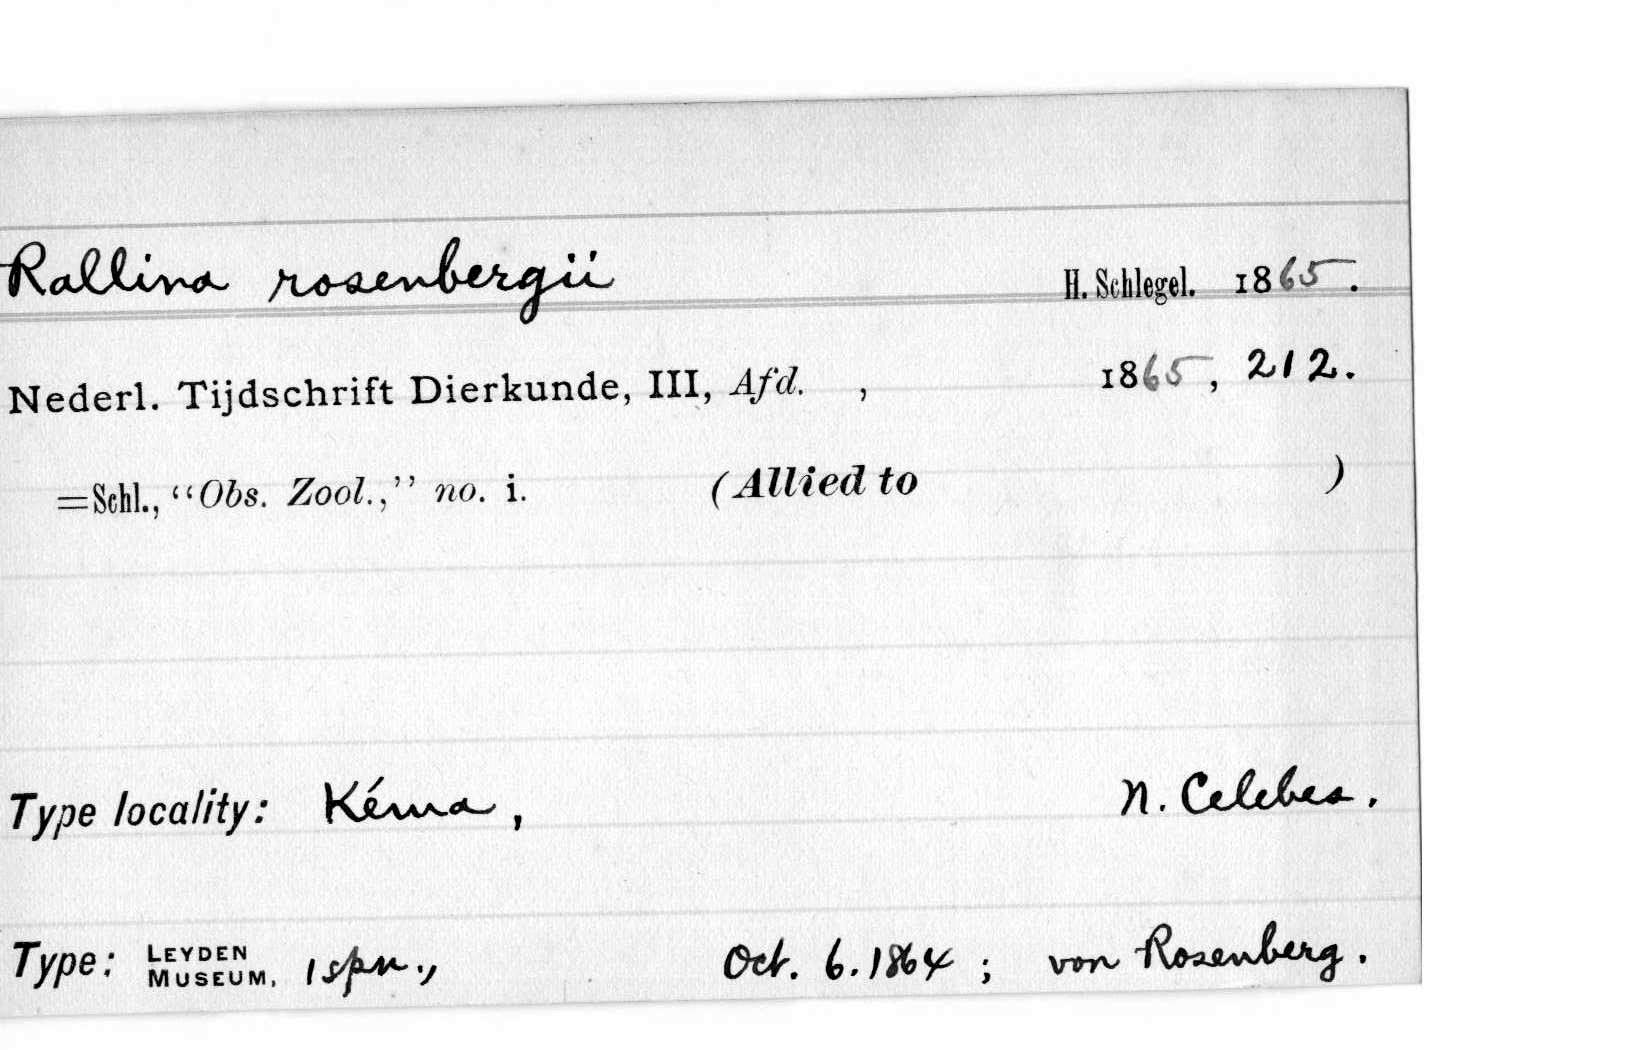 Rallina rosenbergii H. Schlegel. 1865.
Nederl. Tijdschrift Dierkunde, III, Afd. , 1865, 212.
=Schl., "Obs. Zool.," no. i. (Allied to )
Type locality: Kéma, N. Celebes.
Type: LEYDEN MUSEUM, 1 spn., Oct. 6. 1864; von Rosenberg.